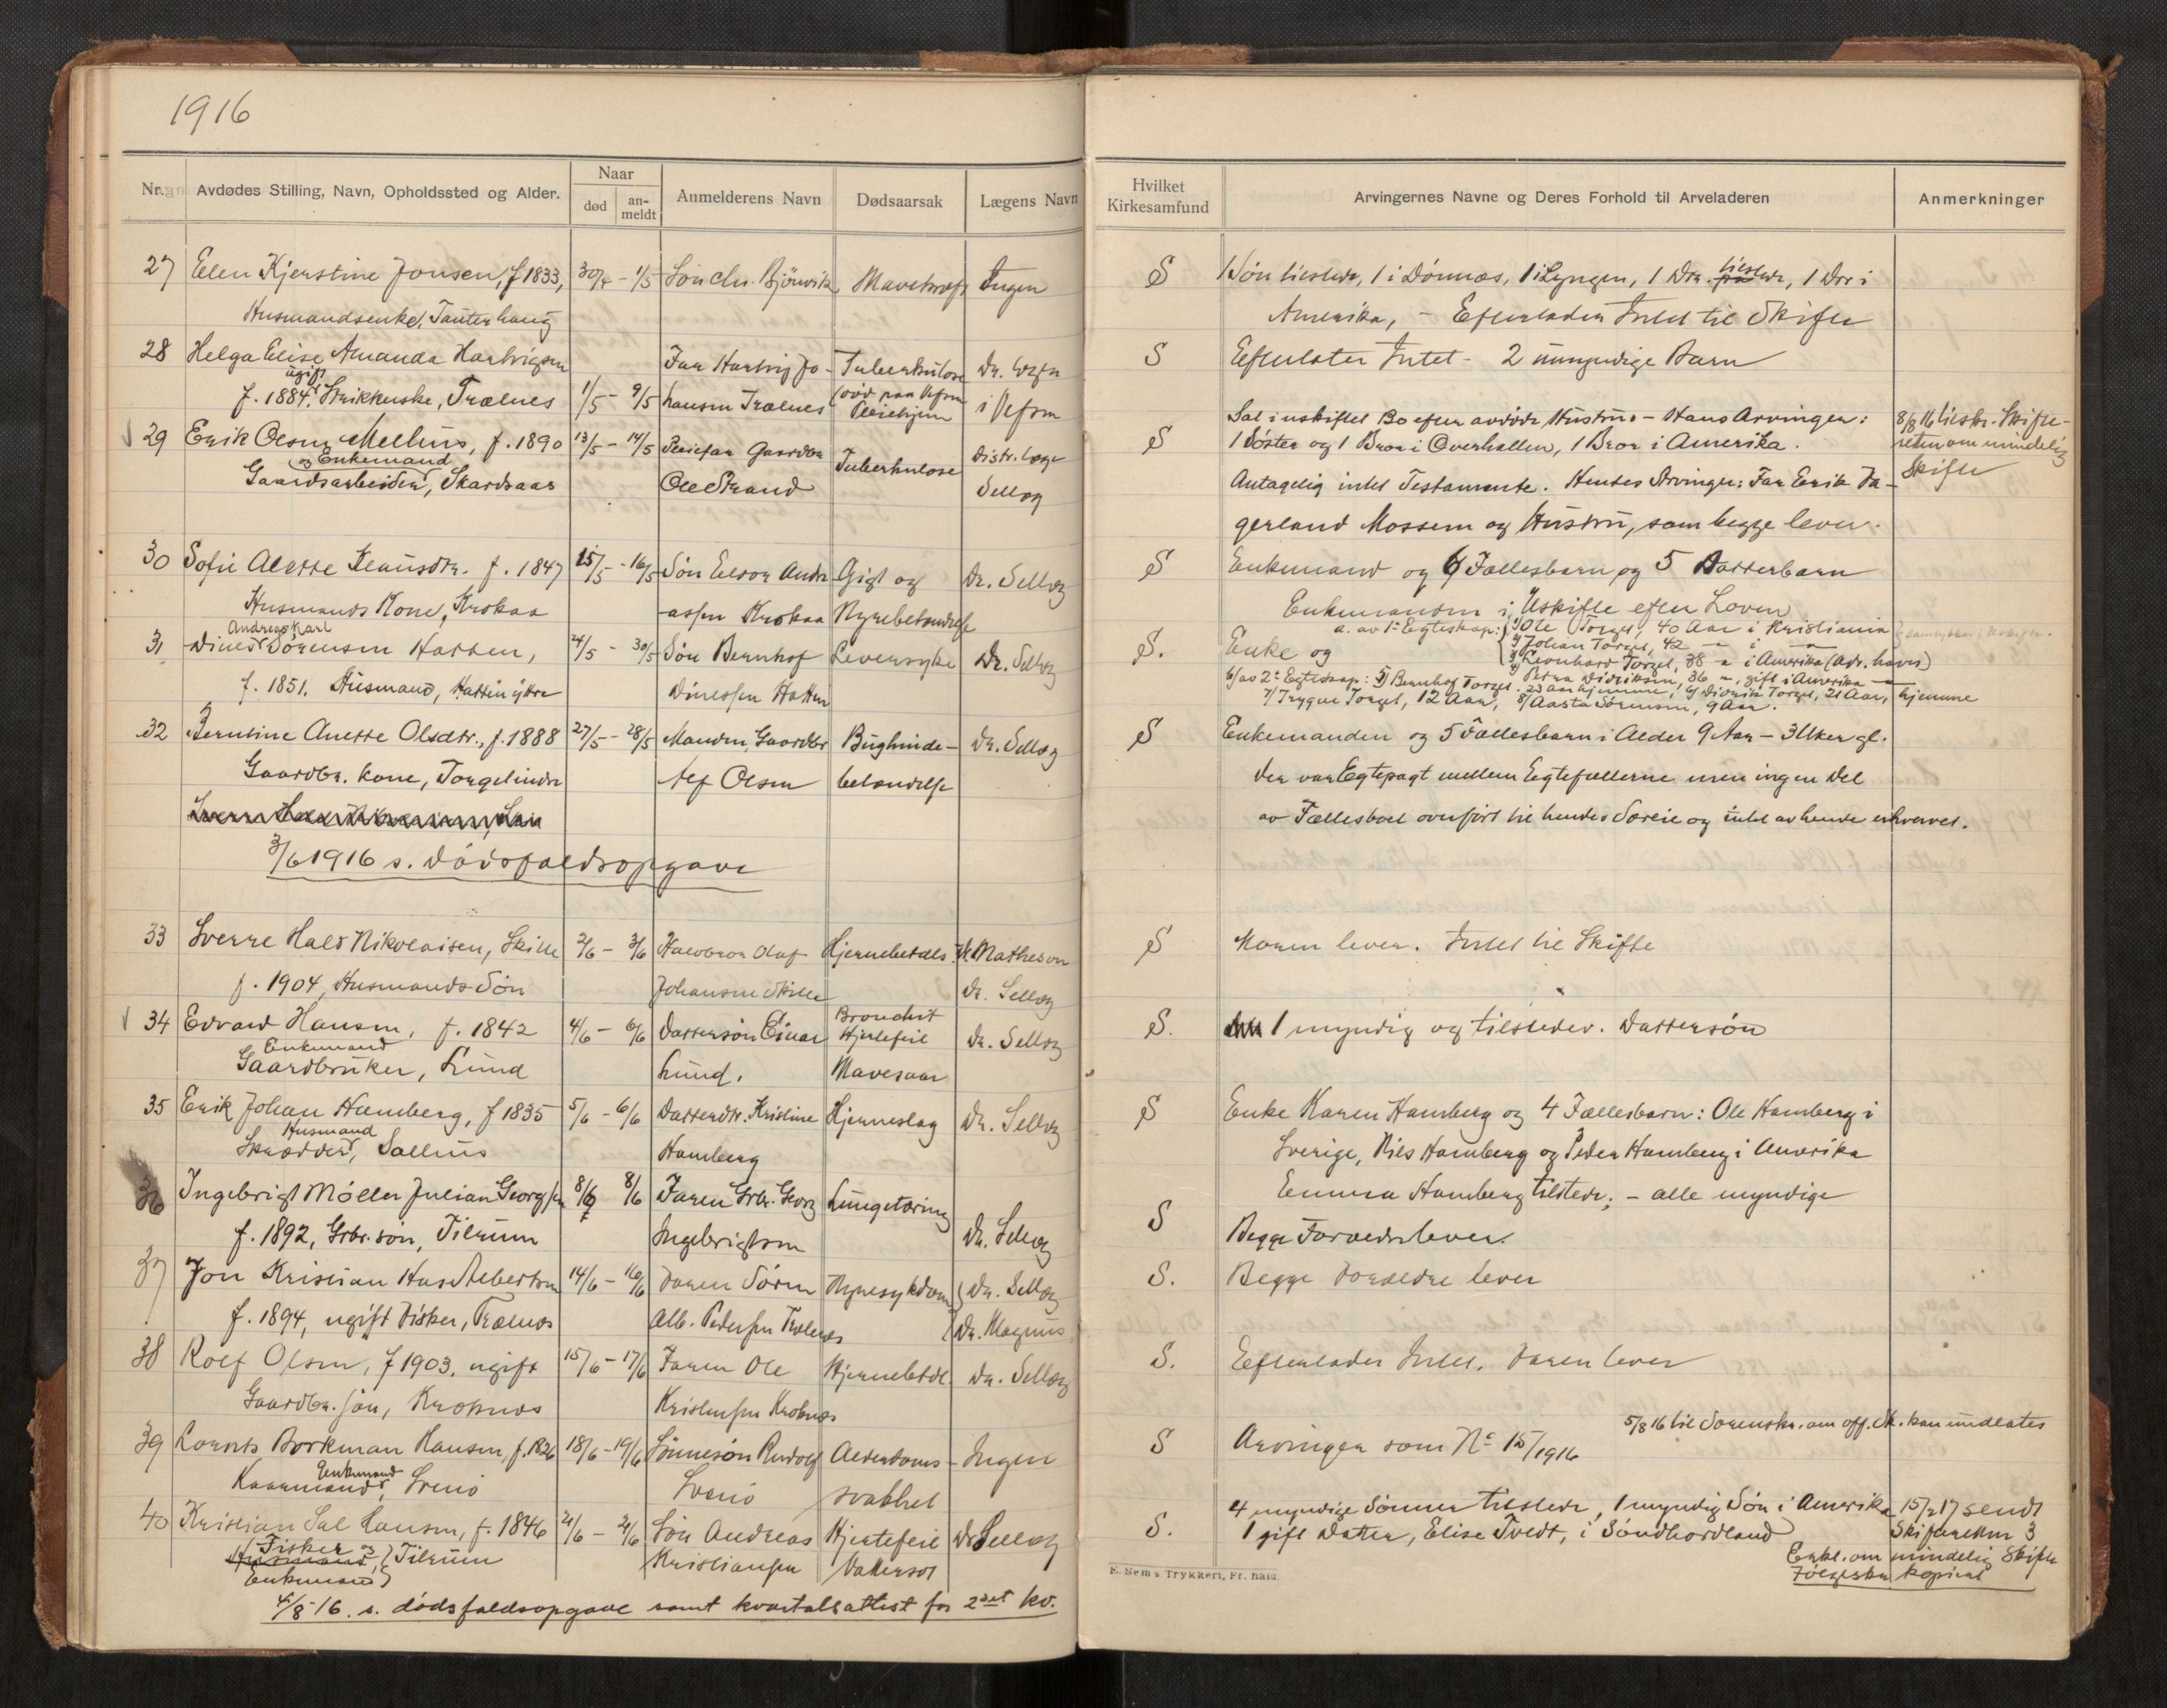 1916
Nr. Avdødes Stilling, Navn, Opholdssted og Alder. Naar død an-meldt Anmelderens Navn Dødsaarsak Lægens Navn
27 Elen Kjerstine Jonsen, f 1833, 30/4 - 1/5 Søn Chr. Bjørnvik Mavekræft Ingen
Husmandsenke, Tauterhaug
28 Helga Elise Amanda Hartvigsen Far Hartvig Jo- Tuberkulose Dr.
ugift
f. 1884, Strikkerske, Trælnes 1/5 - 9/5 hansen Trælnes (død paa Vefsn Pleiehjem i Vefsn
29 Erik Olsen Mellius, f. 1890 13/5 - 14/5 Pleiefar Gaardbr Tuberkulose Distr. læge
og Enkemand
Gaardsarbeider, Skardsaas Ole Strand Sellæg
30 Sofie Alette Klausdtr. f. 1847 15/5 - 16/5 Søn Eldor Andr Gigt og Dr. Sellæg
Husmands Kone, Krokaa -assen Krokaa Nyrebetændelse
Andreas Karl
31 Dines Sørensen Hatten, 24/5 - 30/5 Søn Bernhof Leversyke Dr. Sellæg
f. 1851. Husmand, Hatten ytre Dinessen Hatten
32 Berntine Anette Olsdtr., f. 1888 27/5 - 28/5 Manden Gaardbr Bughinde- Dr. Sellæg
Gaardbr. kone, Torgelindr Alf Olsen betændelse
3/6 1916 s. Dødsfaldsopgave
33 Sverre Hald Nikolaisen, Skille 2/6 - 3/6 Halvbror Olaf Hjernebetdls. Matheson
f. 1904, Husmands Søn Johansen Skille Dr. Sellæg
34 Edvard Hansen, f. 1842 4/6 - 6/6 Dattersøn Einar Bronchit Hjertefeil Dr. Sellæg
Enkemand
Gaardbruker, Lund Lund. Mavesaar
35 Erik Johan Hamberg, f 1835 5/6 - 6/6 Datterdtr. Kristine Hjerneslag Dr. Sellæg
Husmand
Skrædder, Sallius Hamberg
36 Ingebrigt Møller Julian Georgsen 8/6 8/6 Faren Grbr. Georg Lungetæring
f. 1892, Grbr. søn, Tilrum Ingebrigtsen Dr. Sellæg
37 Jon Kristian Hass Albertsen 14/6 - 16/6 Faren Sørn Nyresykdom Dr. Sellæg
f. 1894, ugift Fisker, Trælnes Alb. Pedersen Trælnes Dr. Magnus
38 Rolf Olsen, f 1903, ugift 15/6 - 17/6 Faren Ole Hjernebetdl. Dr. Sellæg
Gaardbr. søn, Kroknes Kristensen Kroknes
39 Lorents Borkman Hansen, f. 1826 18/6 - 19/6 Sønnesøn Rudolf Alderdoms- Ingen
Enkemand
Kaarmand, Svenø Svenø svakhet
40 Kristian Sal Hansen, f. 1846 21/6 - 21/6 Søn Andreas Hjertefeil Dr Sellæg
Fisker og
Husmand, Tilrum Kristiansen Vattersot
Enkemand
4/8-16. s. dødsfaldsopgave samt kvartalsattest for 2det kv.
Hvilket Kirkesamfund Arvingernes Navne og Deres Forhold til Arveladeren Anmerkninger
S 1 Søn tilstede, 1 i Dønnæs, 1 i Lyngen, 1 Dtr. tilstede, 1 Dtr i
Amerika, - Efterlader Intet til Skifte
S Efterlater Intet - 2 umyndige Barn
Sat i uskiftet Bo efter avdøde Hustru - Hans Arvinger: 8/8 16 tilskr. Skifte-
S 1 Søster og 1 Bror i Overhallen, 1 Bror i Amerika. retten om mindelig
Antagelig intet Testamente. Hendes Arvinger: Far Erik Da- Skifte
gerland Mossem og Hustru, som begge lever.
S Enkemand og 6 Fællesbarn og 5 Datterbarn
Enkemanden i Uskifte efter Loven
a. av 1ste Egteskap: 1) Ole Torget, 40 Aar i Kristiania
S. Enke og 2) Johan Torget, 42 - i -
3) Leonhard Torget, 38 - i Amerika (Adr. haves)
4) Petra Didriksen, 36 -, gift i Amerika -
b/ av 2. Egteskap: 5) Bernhof Torget, 23 Aar hjemme, 6) Didrik Torget, 21 Aar, hjemme
7) Trygve Torget, 12 Aar, 8) Aasta Sørensen, 9 Aar.
S Enkemanden og 5 Fællesbarn i Alder 9 Aar - 3 Uker gl.
Der var Egtepagt mellem Egtefællerne men ingen Del
av Fællesboet overført til hendes Særeie og intet av hende erhvervet.
S Moren lever. Intet til Skifte
S. 1 myndig og tilstedev. Dattersøn
S Enke Karen Hamberg og 4 Fællesbarn: Ole Hamberg i
Sverige, Nils Hamberg og Peder Hamberg i Amerika
Emma Hamberg tilstede; - alle myndige
S Begge Forældre lever.
S. Begge Forældre lever
S. Efterlader Intet. Faren lever
5/8 16 til Sorenskr. om off. Sk. kan undlates
S Arvinger som No 15/1916
4 myndige Sønner tilstede, 1 myndig Søn i Amerika 15/2 17 sendt
S. 1 gift Datter, Elise Tvedt, i Søndhordland Skifteretten 3
Erkl. om mindelig Skifte
Følgeskr. kopiert
E. Sem's Trykkeri, Fr.hald.